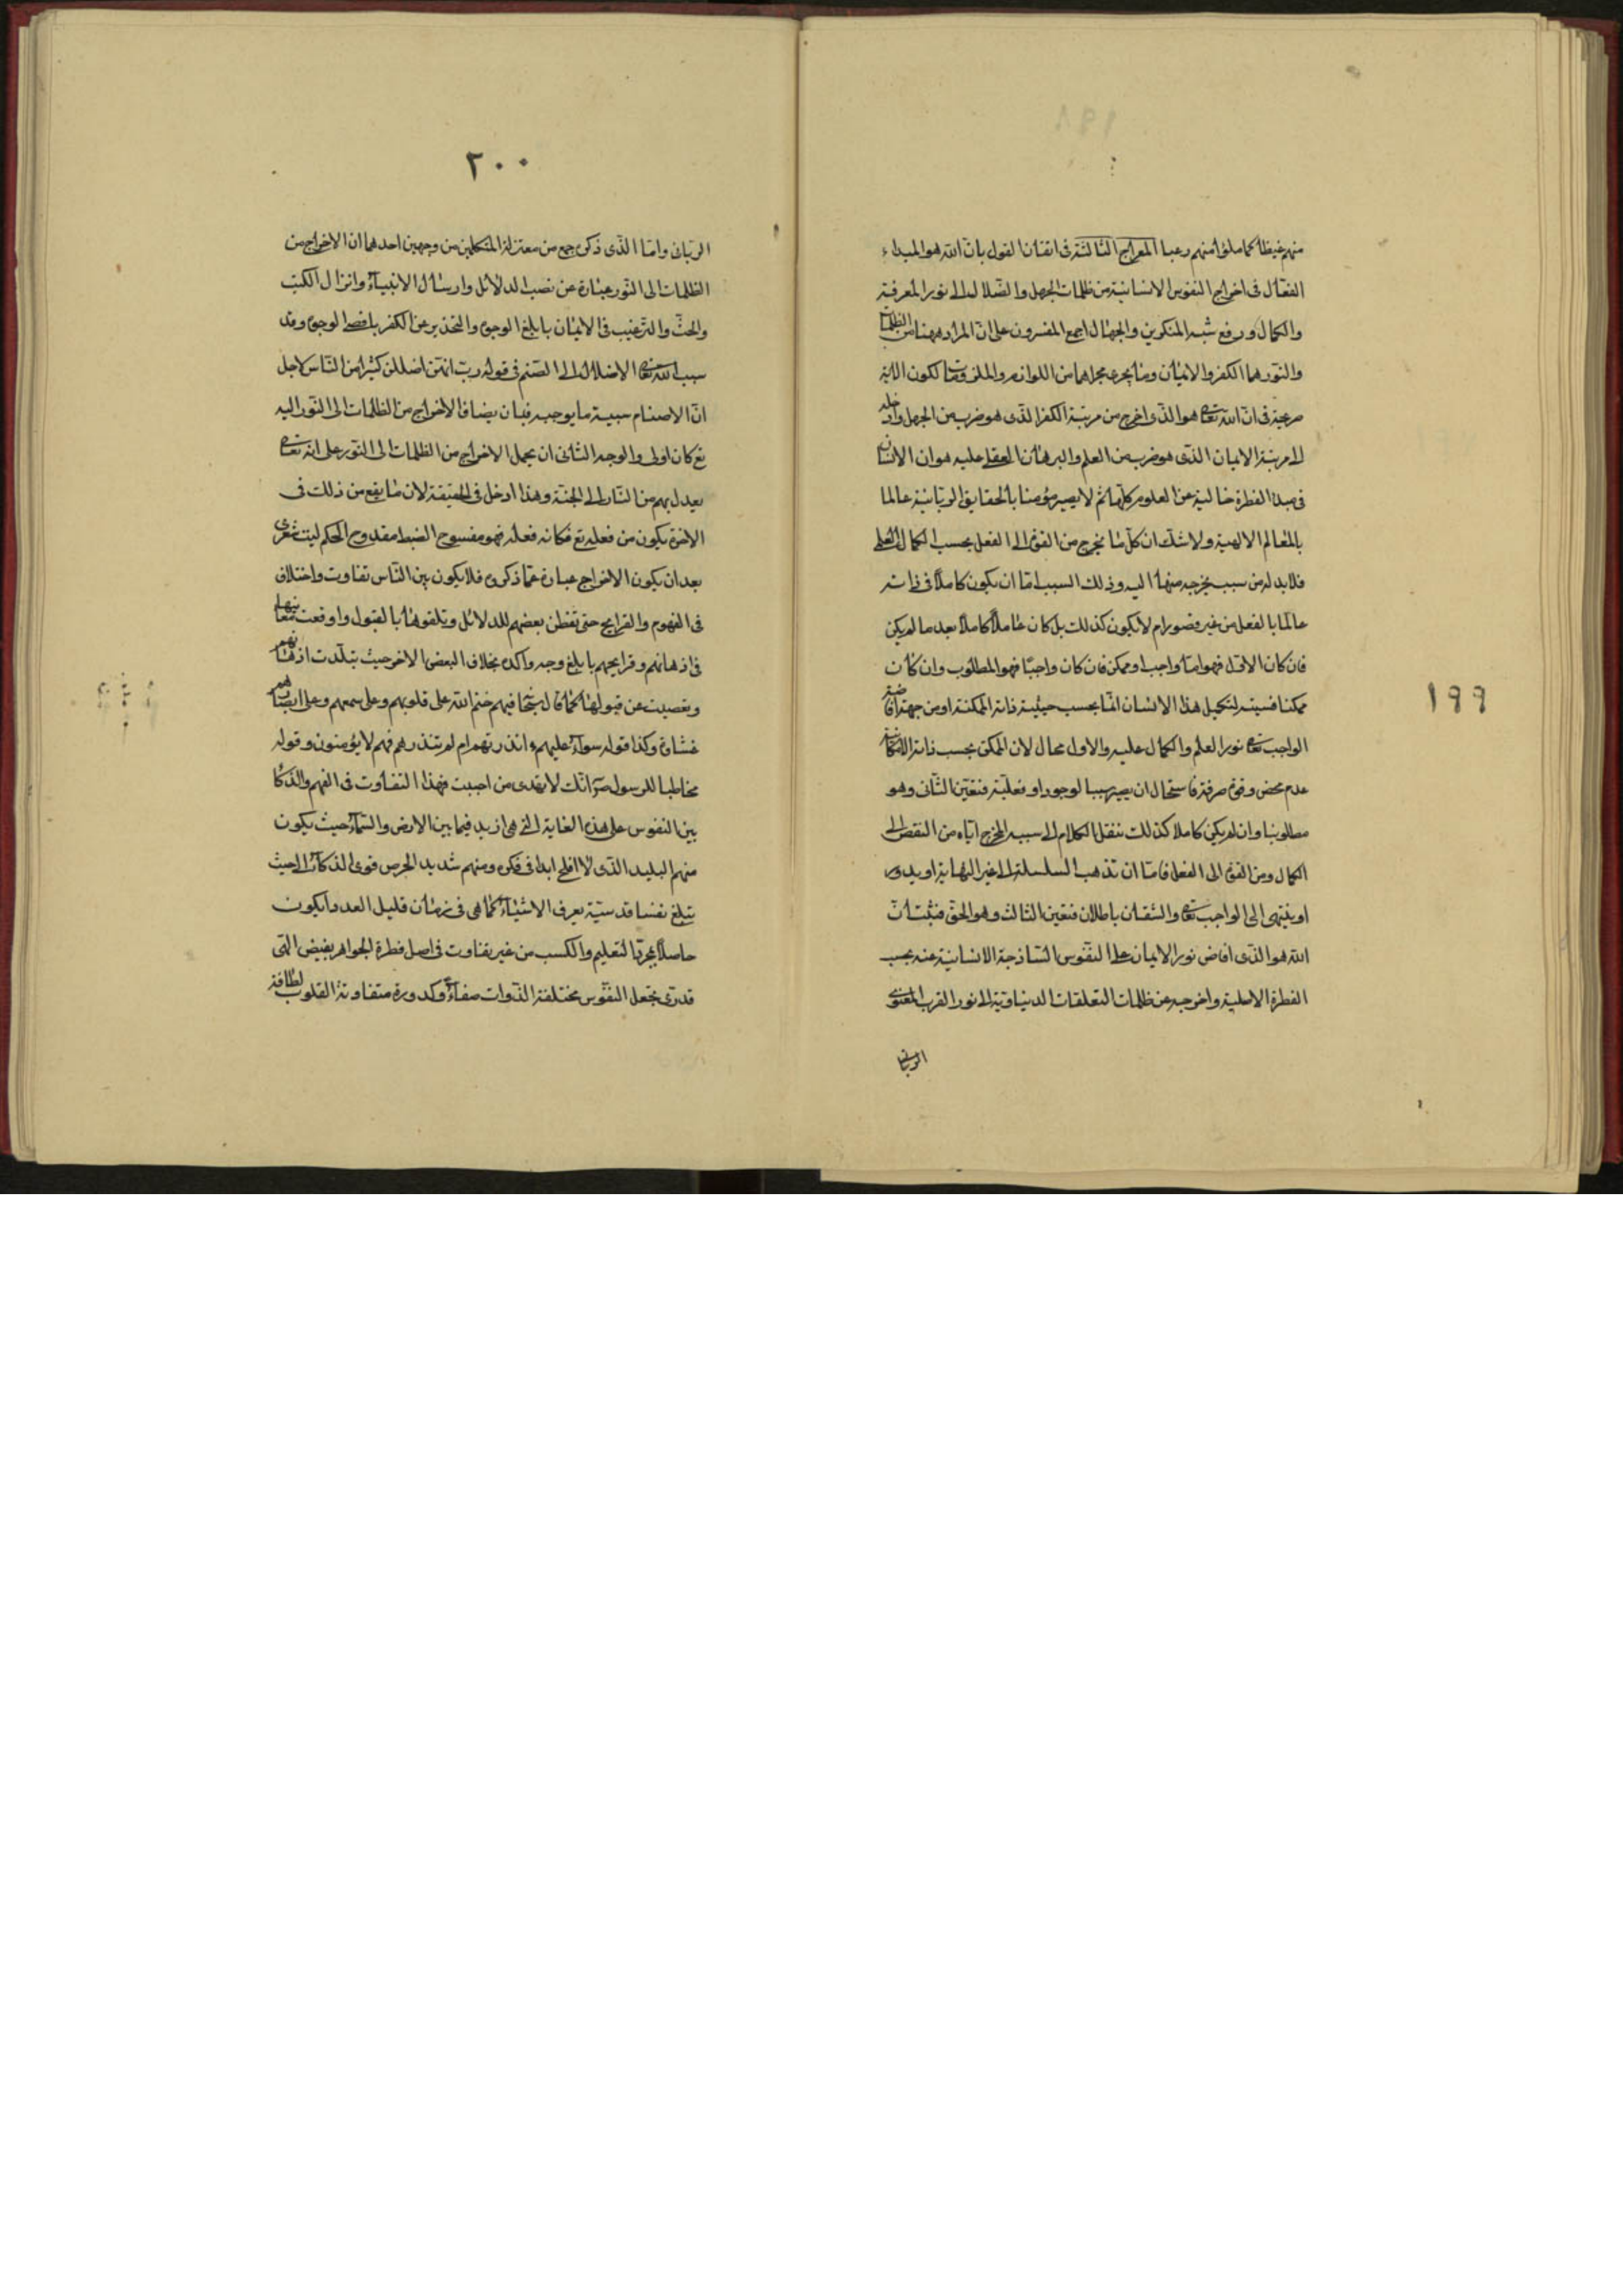 ١٩٩
منهم غيظا كما ملؤا منهم رعبا المعراج الثالثة في اتقان القول بان الله هو المبداء
الفعال في اخراج النفوس الانسانية من ظلمات الجهل والضلال الى نور المعرفة
والكمال ورفع شبه المنكرين والجهال اجمع المفسرون على ان المراد ههنا من الظلمات
والنور هما الكفر والايمان وما يجرى مجراهما من اللوازم والملزومات لكون الاية
صريحة في ان الله تعالى هو الذى اخرج من مرتبة الكفر الذى هو ضرب من الجهل وادخله
الى مرتبة الايمان الذى هو ضرب من العلم والبرهان العقلى عليه هو ان الانسان
في مبدء الفطرة خالية عن العلوم كلها ثم لا يصير مؤمنا بالحقايق الربانية عالما
بالمعالم الالهية ولا شك ان كل ما يخرج من القوة الى الفعل بحسب الكمال العلمى
فلا بد له من سبب يخرجه منها اليه وذلك السبب اما ان يكون كاملا في ذاته
عالما بالفعل من غير قصور ام لا يكون كذلك بل كان عاملا كاملا بعد ما لم يكن
فان كان الاول فهو اما واجب او ممكن فان كان واجبا فهو المطلوب وان كان
ممكنا فسببيته لتكميل هذا الانسان اما بحسب حيثية ذاته الممكنة او من جهة افاضة
الواجب تعالى نور العلم والكمال عليه والاول محال لان الممكن بحسب ذاته الامكانية
عدم محض وقوة صرفة فاستحال ان يصير سببا لوجود او فعلية فتعين الثانى وهو
مطلوبنا وان لم يكن كاملا كذلك ننقل الكلام الى سببه المخرج اياه من النقص الى
الكمال ومن القوة الى الفعل فاما ان تذهب السلسلة الى غير النهاية او يدور
او ينتهى الى الواجب تعالى والشقان باطلان فتعين الثالث وهو الحق فثبت ان
الله هو الذى افاض نور الايمان على النفوس الساذجة الانسانية عنه بحسب
الفطرة الاصلية واخرجه من ظلمات التعلقات الدنياوية الى نور القرب المعنوى
الربانى
٢٠٠
الربانى واما الذى ذكره جمع من معتزلة المتكلمين من وجهين احدهما ان الاخراج من
الظلمات الى النور عبارة عن نصب الدلائل وارسال الانبياء وانزال الكتب
والحث والترغيب في الايمان بابلغ الوجوه والتحذير عن الكفر باقصى الوجوه وقد
سبب الله تعالى الاضلال الى الصنم في قوله رب انهن اضللن كثيرا من الناس لاجل
ان الاصنام سببية ما يوجبه فبان يضاف الاخراج من الظلمات الى النور اليه
تع كان اولى والوجه الثانى ان يحمل الاخراج من الظلمات الى النور على انه تعالى
يعدل بهم من النار الى الجنة وهذا ادخل في الحقيقة لان ما يقع من ذلك في
الاخرة يكون من فعله تع فكانه فعله فهو مفسوح الضبط مقدوح الحكم ليت شعرى
بعد ان يكون الاخراج عبارة عما ذكروه فلا يكون بين الناس تفاوت واختلاف
في الفهوم والقرايح حتى تفطن بعضهم للدلائل وتلقوها بالقبول واوقعت معانيها
في اذهانهم وقرايحهم بابلغ وجه واكده بخلاف البعض الاخر حيث تبلدت اذهانهم
وتعصيت عن قبولها كما قال سبحانه فيهم ختم الله على قلوبهم وعلى سمعهم وعلى ابصارهم
غشاوة وكذا قوله سواء عليهم ءانذرتهم ام لم تنذرهم فهم لا يؤمنون وقوله
مخاطبا للرسول ص انك لا تهدى من احببت فهذا التفاوت في الفهم والذكا
بين النفوس على هذه الغاية التى هى ازيد فيما بين الارض والسماء حيث يكون
منهم البليد الذى لا افلح ابدا في فكره ومنهم شديد الحرص قوى الذكاء الى حيث
يبلغ نفسا قدسية يعرف الاشياء كما هى في زمان قليل العدد ايكون
حاصلا بمجرد التعليم والكسب من غير تفاوت في اصل فطرة الجواهر بفيض الهى
قدرى بجعل النفوس مختلفة الذوات صفاء وكدورة متفاوتة القلوب لطافة